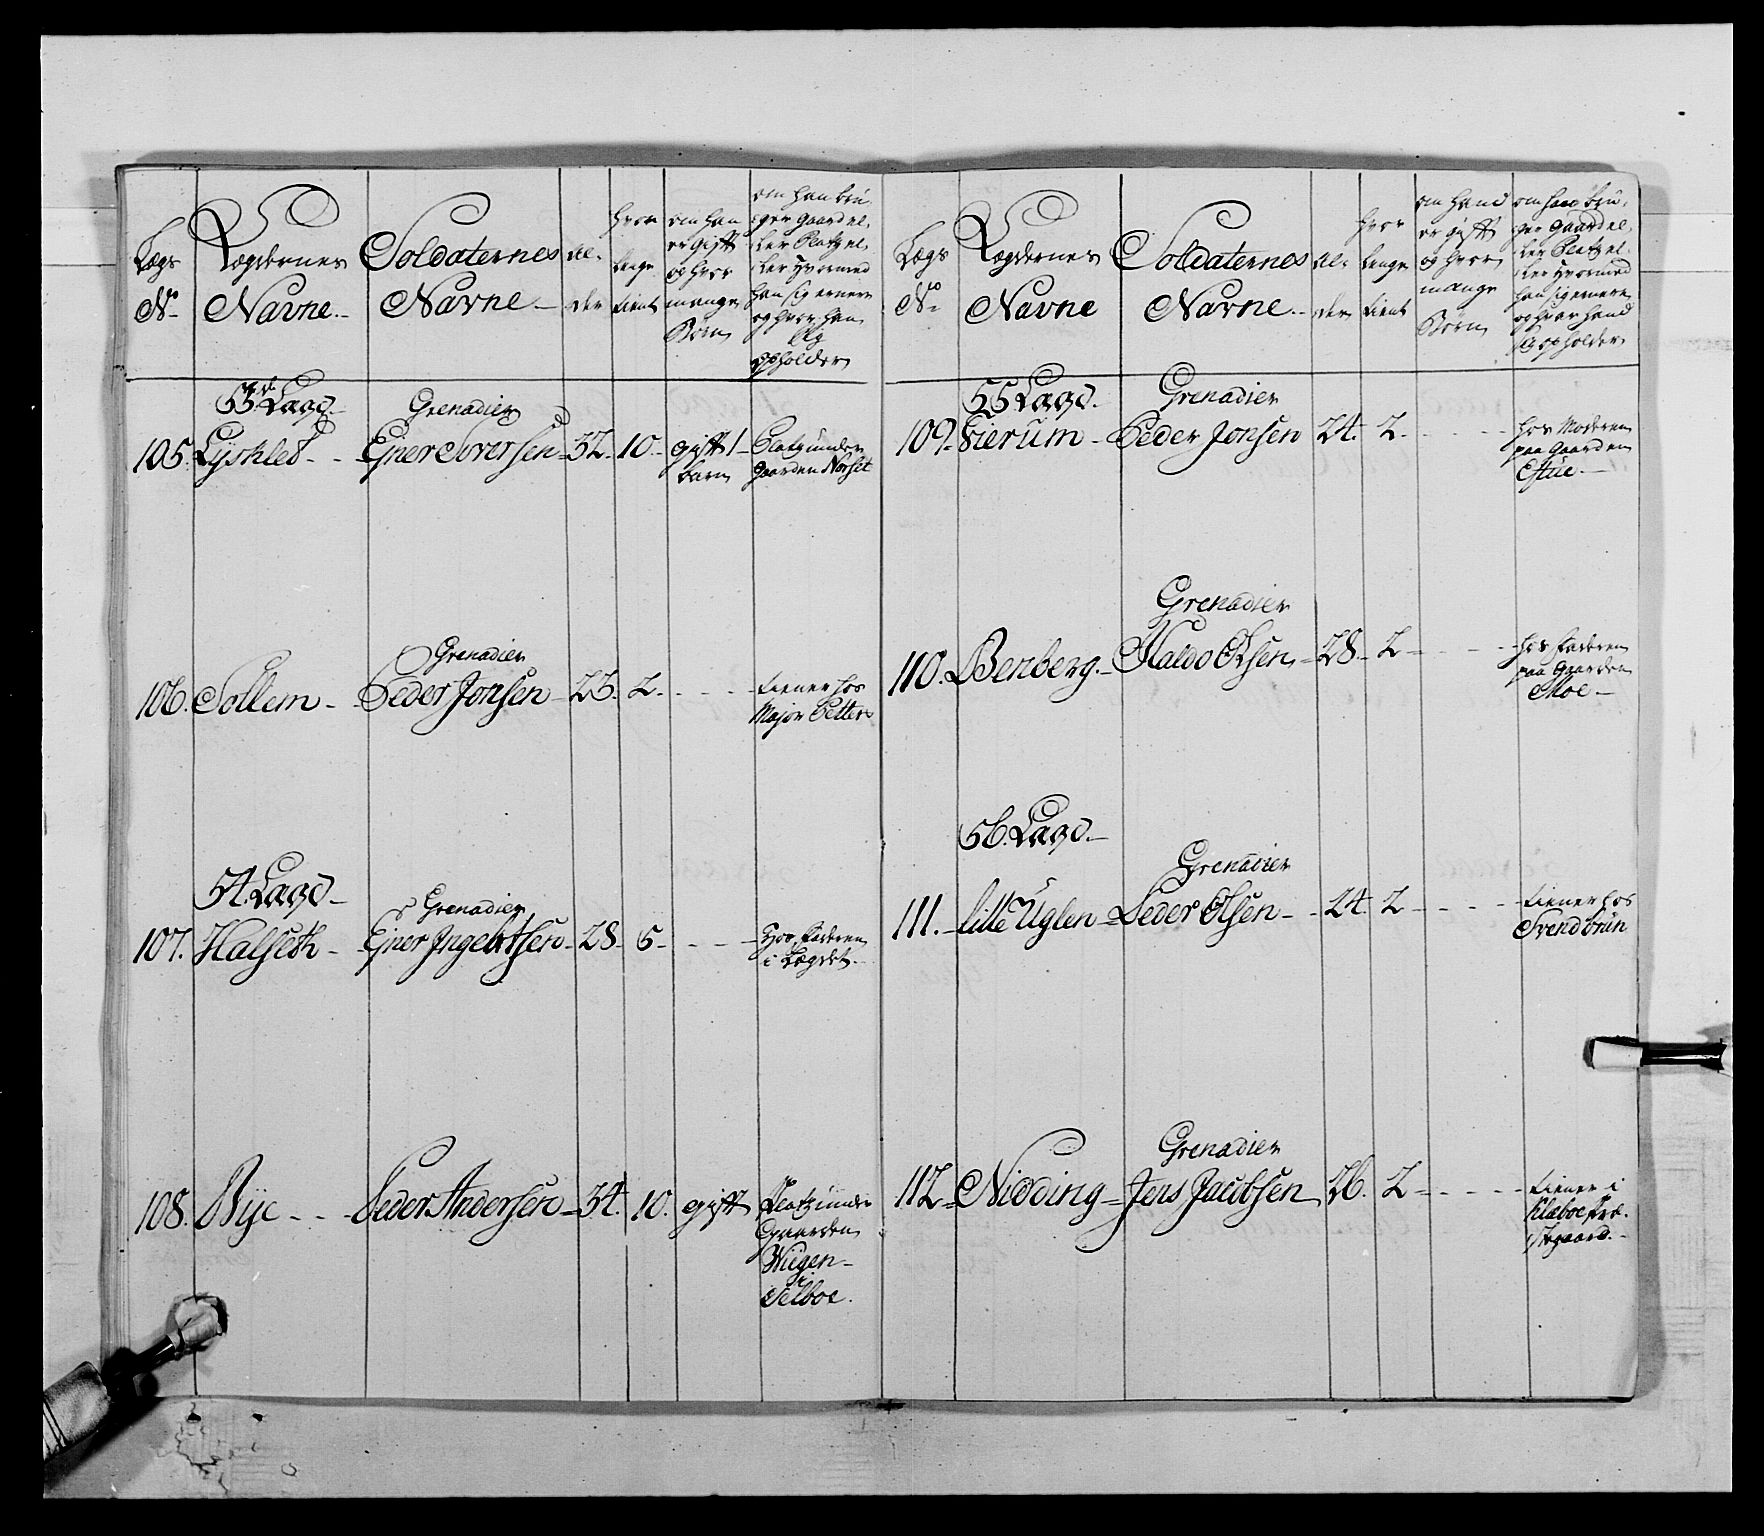 Lægs No
Lægdernes Navne.
Soldaternes Navne
Alder
hvor lenge tient
om han er gift og hvor mange Børn
om han bruger gaard eller Platz eller hvormed han sig ernærer og hvor han sig opholder
53de Lægd.
Grenadier
105. Lysklet - Ejner Iversen - 32. 10. gift 1 barn - Platz under gaarden Norset
Grenadier
106. Sollem - Peder Jonsen - 23. 2. - tiener hos Major Petters
54. Lægd
Grenadier
107. Halseth - Ejner Ingebrtsen - 28 - 5 - Hos Faderen i Lægdet.
108. Bye - Peder Andersen - 34. 10. gift Platz under Gaarden Wiigen i Selboe.
Lægs No
Lægdernes Navne
Soldaternes Navne
Alder
hvor lenge tient
om hand er gift og hvor mange Børn
om hand bruger gaard eller Platz eller hvormed hand sig ernærer og hvor hand sig opholder
55 Lægd.
Grenadier
109. Fierum - Peder Jonsen 24. 2. - hos Moderen paa Gaarden Estue.
Grenadier
110. Benberg. - Haldo Olsen - 28 - 2 - hos Faderen paa Gaarden Moe -
56. Lægd -
Grenadier
111. - lille Uglen - Peder Olsen - 24. 2 - tiener hos Svend brun
Grenadier
112 - Nidding - Jens Jacobsen 26. 2 - tiener i Klæboe Præstegaard.